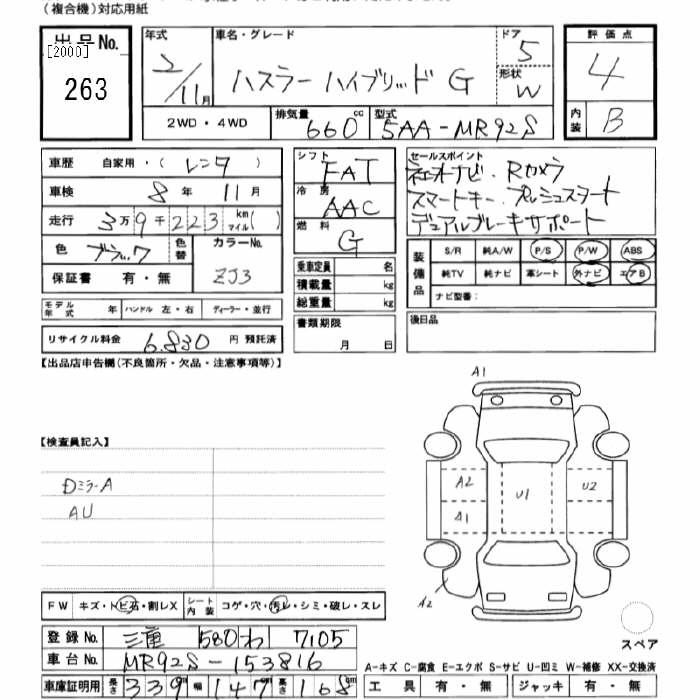 (複合機)対応用紙
出品No.
[2000]
263
年式
2/11月
車名・グレード
ハスラー ハイブリッド G
ドア
5
形状
W
評価点
4
内装
B
2WD・4WD
排気量
660cc
型式
5AA-MR92S
車歴 自家用・(レンタ)
車検 8年11月
走行 3万9千223 km マイル( )
色 ブラック
色替
カラーNo.
ZJ3
保証書 有・無
モデル年式 年 ハンドル 左・右 ディーラー・並行
リサイクル料金 6.830 円 預託済
シフト
FAT
冷房
AAC
燃料
G
乗車定員 名
積載量 kg
総重量 kg
書類期限
月 日
セールスポイント
社外ナビ・Rカメラ
スマートキー・プッシュスタート
デュアルブレーキサポート
装備品
S/R 純A/W P/S P/W ABS
純TV 純ナビ 革シート 外ナビ エアB
ナビ型番:
後日品
【出品店申告欄(不良箇所・欠品・注意事項等)】
【検査員記入】
DミラーA
AU
A1
A2
A1
U1
U2
A2
スペア
FW キズ・トビ石・割レX
シート内装 コゲ・穴・汚レ・シミ・破レ・スレ
登録No. 三重 580 わ 7105
車台No. MR92S-153816
車庫証明用 長さ 339cm 幅 147cm 高さ 168cm
A-キズ C-腐食 E-エクボ S-サビ U-凹ミ W-補修 XX-交換済
工具 有・無 ジャッキ 有・無